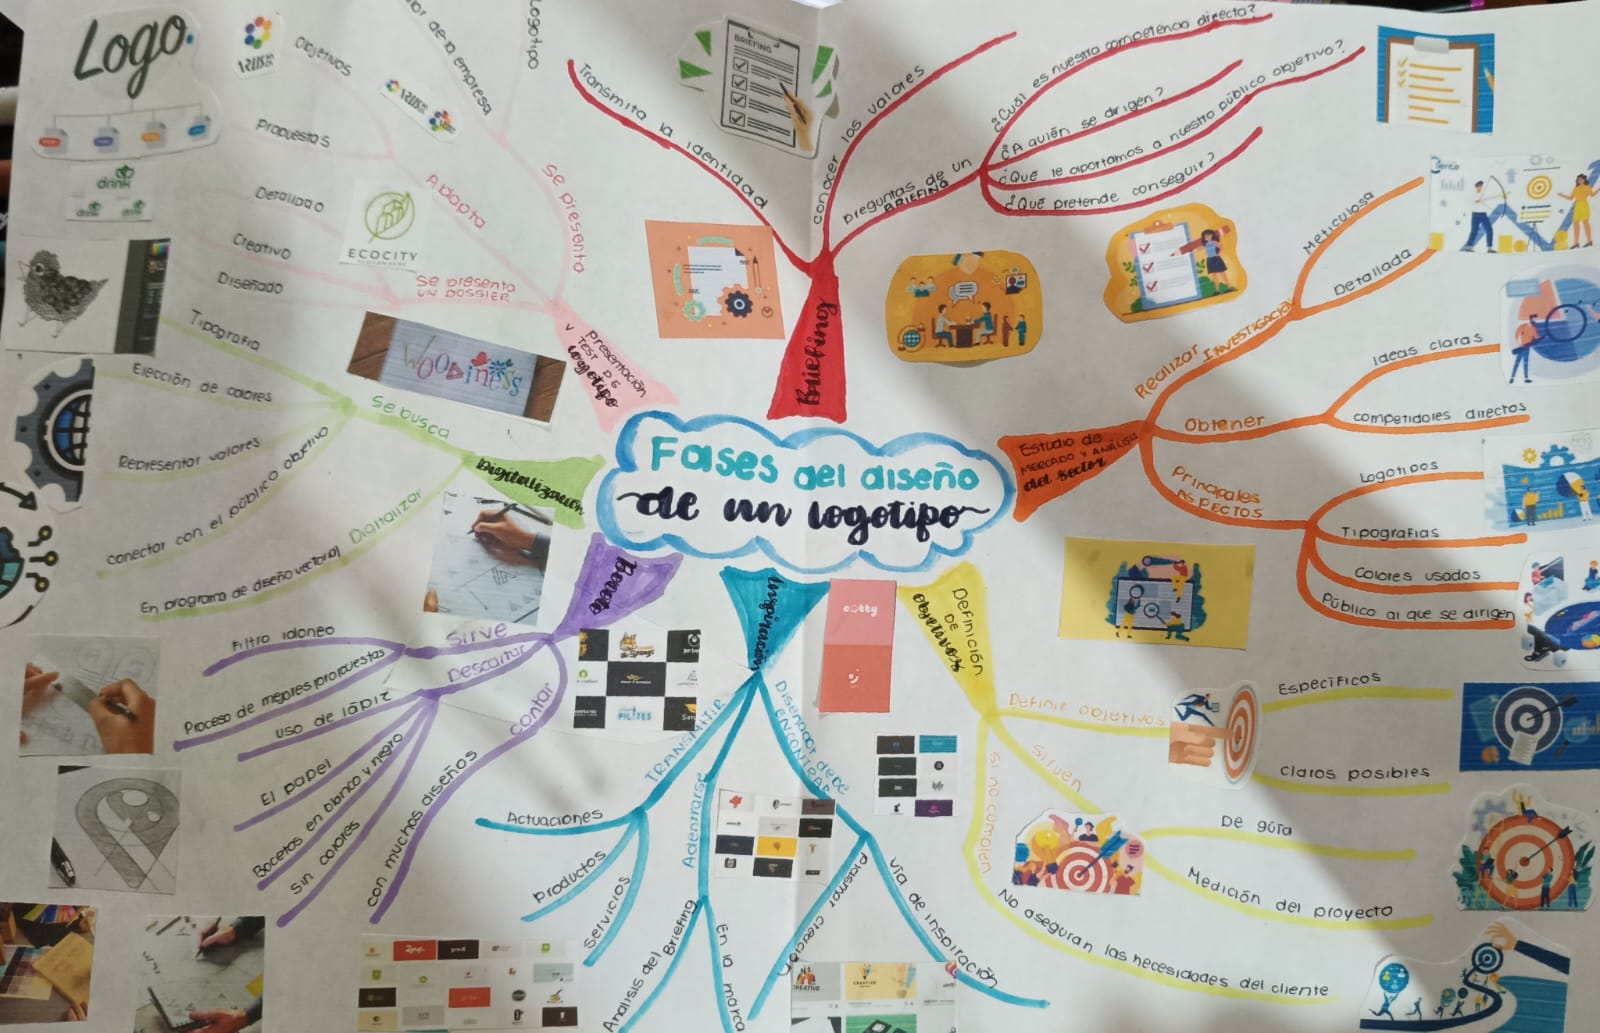 Fases del diseño
de un logotipo
Briefing
Transmita la identidad
conocer los valores
Preguntas de un
BRIEFING
¿Cuál es nuestra competencia directa?
¿A quién se dirigen?
¿Qué le aportamos a nuestro público objetivo?
¿Qué pretende conseguir?
BRIEFING
Estudio de
MERCADO Y ANÁLISIS
del sector
Realizar
INVESTIGACIÓN
Meticulosa
Detallada
Obtener
Ideas claras
competidores directos
Principales
ASPECTOS
Logotipos
Tipografías
Colores usados
Público al que se dirigen
Definición
DE
objetivos
Definir objetivos
Específicos
Claros posibles
Sirven
De guía
Medición del proyecto
si no cumplen
No aseguran las necesidades del cliente
Inspiración
TRANSMITIR
Actuaciones
productos
servicios
Adentrarse
Análisis del Briefing
En la marca
Diseñador debe
ENCONTRAR
Vía de inspiración
CREATIVE
CREATIVE
Boceto
Sirve
Filtro idoneo
Proceso de mejores propuestas
Descartar
uso de lápiz
El papel
Bocetos en blanco y negro
Sin colores
contar
con muchos diseños
PILATES
Digitalización
Se busca
Tipografía
Elección de colores
Representar valores
conectar con el público objetivo
Digitalizar
En programa de diseño vectorial
Presentación
Y TEST DE
logotipo
Se presenta
UN DOSSIER
Detallado
Creativo
Diseñado
Adapta
Objetivos
Propuestas
Se presenta
de la empresa
Logotipo
Logo.
drink
ECOCITY
WOODINESS